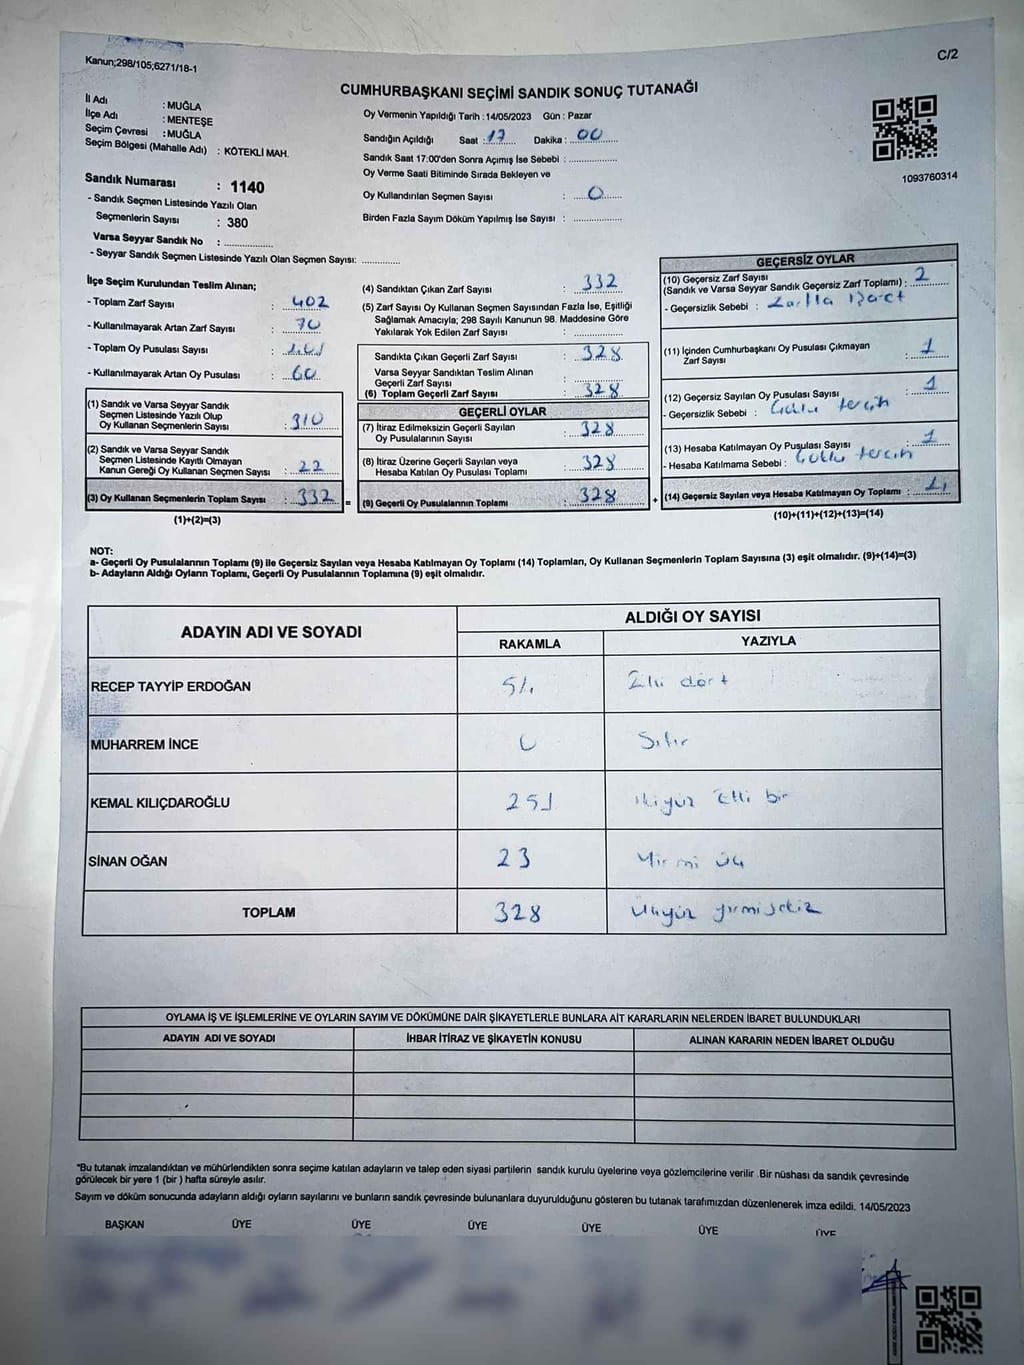 Kanun;298/105;6271/18-1
C/2
CUMHURBAŞKANI SEÇİMİ SANDIK SONUÇ TUTANAĞI
İl Adı : MUĞLA
İlçe Adı : MENTEŞE
Seçim Çevresi : MUĞLA
Seçim Bölgesi (Mahalle Adı) : KÖTEKLİ MAH.
Oy Vermenin Yapıldığı Tarih :14/05/2023 Gün : Pazar
Sandığın Açıldığı Saat : 17 Dakika : 00
Sandık Saat 17:00'den Sonra Açımış İse Sebebi :
Oy Verme Saati Bitiminde Sırada Bekleyen ve
Oy Kullandırılan Seçmen Sayısı : 0
Birden Fazla Sayım Döküm Yapılmış İse Sayısı :
1093760314
Sandık Numarası : 1140
- Sandık Seçmen Listesinde Yazılı Olan
Seçmenlerin Sayısı : 380
Varsa Seyyar Sandık No :
- Seyyar Sandık Seçmen Listesinde Yazılı Olan Seçmen Sayısı:
İlçe Seçim Kurulundan Teslim Alınan;
- Toplam Zarf Sayısı : 402
- Kullanılmayarak Artan Zarf Sayısı : 70
- Toplam Oy Pusulası Sayısı :
- Kullanılmayarak Artan Oy Pusulası : 60
(1) Sandık ve Varsa Seyyar Sandık
Seçmen Listesinde Yazılı Olup
Oy Kullanan Seçmenlerin Sayısı : 310
(2) Sandık ve Varsa Seyyar Sandık
Seçmen Listesinde Kayıtlı Olmayan
Kanun Gereği Oy Kullanan Seçmen Sayısı : 22
(3) Oy Kullanan Seçmenlerin Toplam Sayısı : 332 =
(1)+(2)=(3)
(4) Sandıktan Çıkan Zarf Sayısı : 332
(5) Zarf Sayısı Oy Kullanan Seçmen Sayısından Fazla İse, Eşitliği
Sağlamak Amacıyla; 298 Sayılı Kanunun 98. Maddesine Göre
Yakılarak Yok Edilen Zarf Sayısı :
Sandıkta Çıkan Geçerli Zarf Sayısı : 328
Varsa Seyyar Sandıktan Teslim Alınan
Geçerli Zarf Sayısı :
(6) Toplam Geçerli Zarf Sayısı : 328
GEÇERLİ OYLAR
(7) İtiraz Edilmeksizin Geçerli Sayılan
Oy Pusulalarının Sayısı : 328
(8) İtiraz Üzerine Geçerli Sayılan veya
Hesaba Katılan Oy Pusulası Toplamı : 328
(9) Geçerli Oy Pusulalarının Toplamı : 328 +
GEÇERSİZ OYLAR
(10) Geçersiz Zarf Sayısı
(Sandık ve Varsa Seyyar Sandık Geçersiz Zarf Toplamı) : 2
- Geçersizlik Sebebi : Zarfta İşaret
(11) İçinden Cumhurbaşkanı Oy Pusulası Çıkmayan
Zarf Sayısı : 1
(12) Geçersiz Sayılan Oy Pusulası Sayısı : 1
- Geçersizlik Sebebi : Çoklu tercih
(13) Hesaba Katılmayan Oy Pusulası Sayısı : 1
- Hesaba Katılmama Sebebi : Çoklu tercih
(14) Geçersiz Sayılan veya Hesaba Katılmayan Oy Toplamı :
(10)+(11)+(12)+(13)=(14)
NOT:
a- Geçerli Oy Pusulalarının Toplamı (9) ile Geçersiz Sayılan veya Hesaba Katılmayan Oy Toplamı (14) Toplamları, Oy Kullanan Seçmenlerin Toplam Sayısına (3) eşit olmalıdır. (9)+(14)=(3)
b- Adayların Aldığı Oyların Toplamı, Geçerli Oy Pusulalarının Toplamına (9) eşit olmalıdır.
ADAYIN ADI VE SOYADI ALDIĞI OY SAYISI
RAKAMLA YAZIYLA
RECEP TAYYİP ERDOĞAN 54 Elli dört
MUHARREM İNCE 0 Sıfır
KEMAL KILIÇDAROĞLU 251 ikiyüz Elli bir
SİNAN OĞAN 23 Yirmi üç
TOPLAM 328 Üçyüz yirmisekiz
OYLAMA İŞ VE İŞLEMLERİNE VE OYLARIN SAYIM VE DÖKÜMÜNE DAİR ŞİKAYETLERLE BUNLARA AİT KARARLARIN NELERDEN İBARET BULUNDUKLARI
ADAYIN ADI VE SOYADI İHBAR İTİRAZ VE ŞİKAYETİN KONUSU ALINAN KARARIN NEDEN İBARET OLDUĞU
"Bu tutanak imzalandıktan ve mühürlendikten sonra seçime katılan adayların ve talep eden siyasi partilerin sandık kurulu üyelerine veya gözlemcilerine verilir .Bir nüshası da sandık çevresinde
görülecek bir yere 1 (bir ) hafta süreyle asılır.
Sayım ve döküm sonucunda adayların aldığı oyların sayılarını ve bunların sandık çevresinde bulunanlara duyurulduğunu gösteren bu tutanak tarafımızdan düzenlenerek imza edildi. 14/05/2023
BAŞKAN ÜYE ÜYE ÜYE ÜYE ÜYE ÜYE